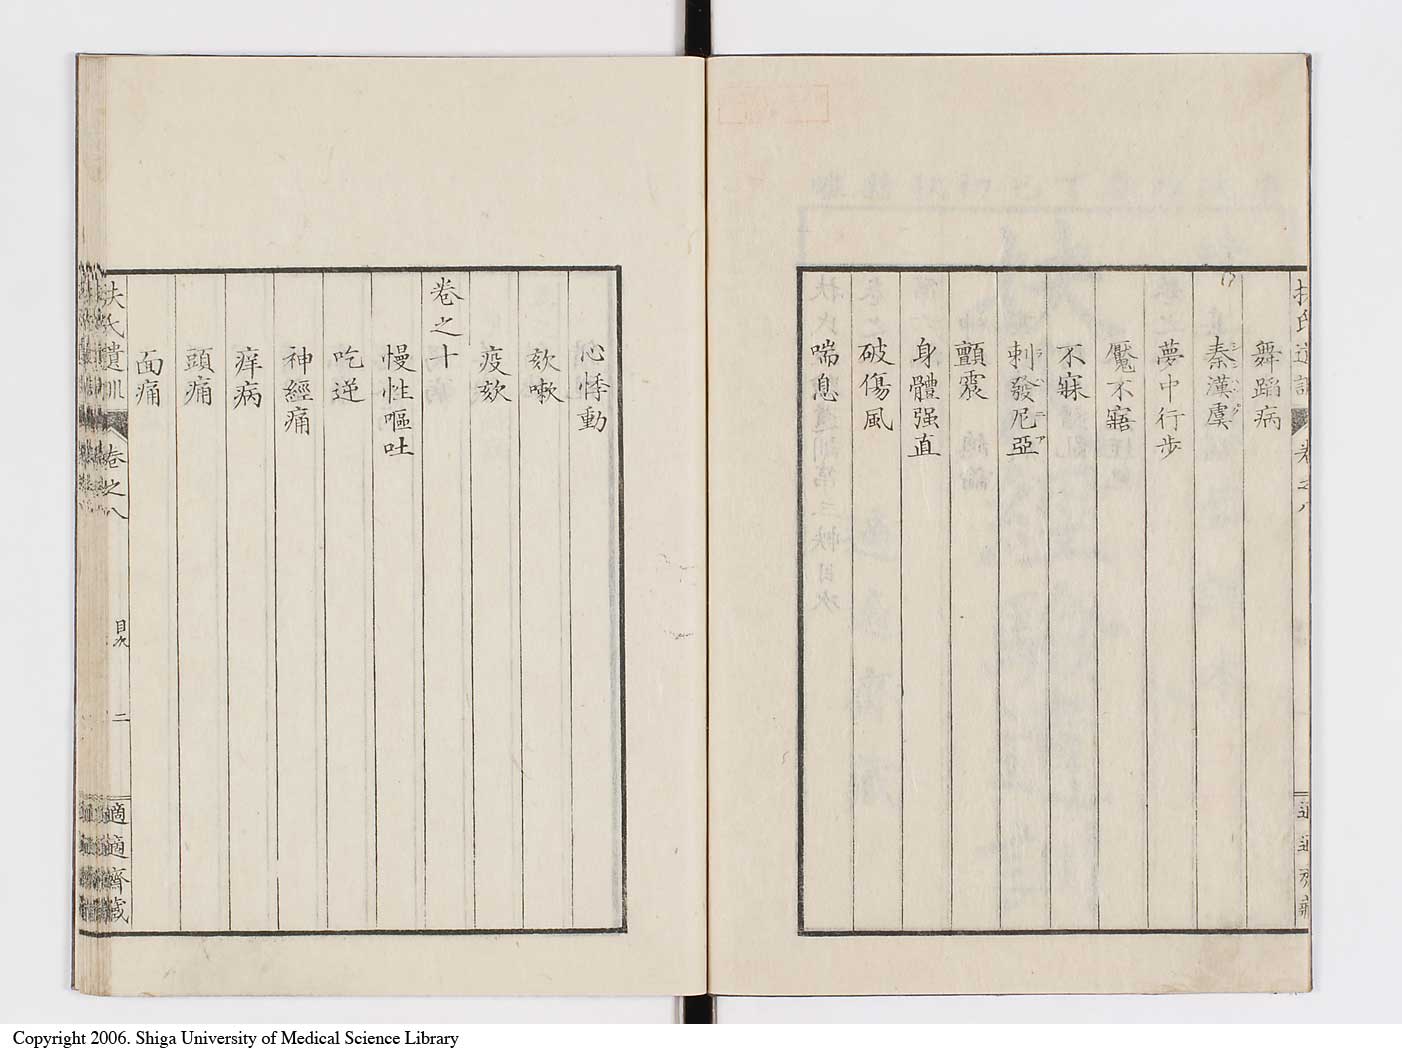 舞蹈病
秦漢虞
夢中行歩
魘不寤
不寐
刺發尼亞
顫震
身體强直
破傷風
喘息
心悸動
欬嗽
疫欬
卷之十
慢性嘔吐
吃逆
神經痛
痒病
頭痛
面痛
扶氏遺訓 卷之八 目次 二 適適齋藏
Copyright 2006. Shiga University of Medical Science Library